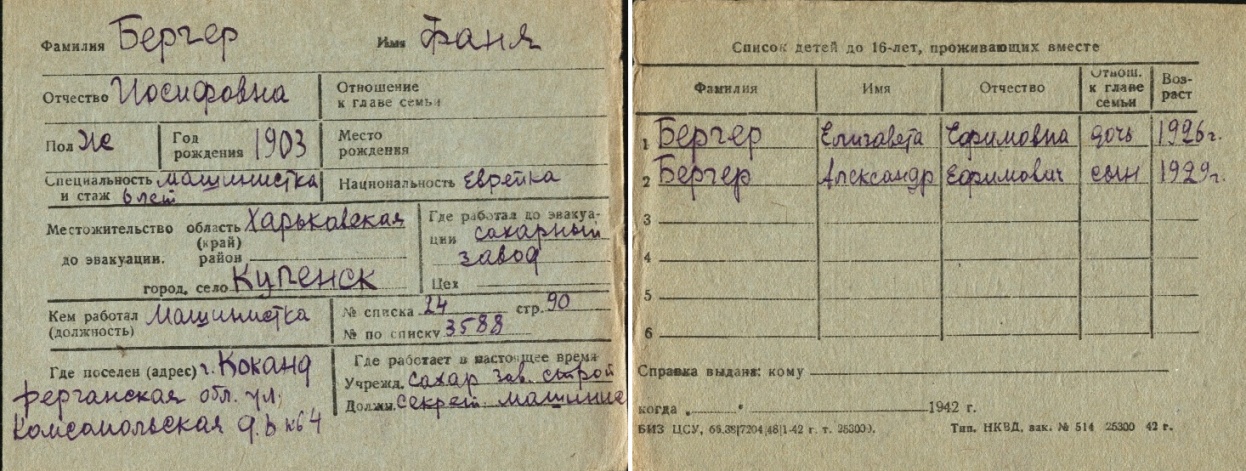 Фамилия Бергер Имя Фаня
Отчество Иосифовна Отношение к главе семьи
Пол Же Год рождения 1903 Место рождения
Специальность и стаж машинистка 6 лет Национальность Еврейка
Местожительство до эвакуации. область (край) Харьковская
район
город, село Купенск
Где работал до эвакуации сахарный завод
Цех
Кем работал (должность) Машинистка
№ списка 24 стр. 90
№ по списку 3588
Где поселен (адрес) г. Коканд
Ферганская обл. ул.
Комсомольская
Где работает в настоящее время
Учрежд. Сахар зав. строй
Должн. Секрет. машинис
Список детей до 16-лет, проживающих вместе
Фамилия Имя Отчество Отнош. к главе семьи Возраст
1 Бергер Елизавета Ефимовна дочь 1926 г.
2 Бергер Александр Ефимович сын 1929 г.
3
4
5
6
Справка выдана: кому
когда 1942 г.
Тип. НКВД, зак. № 514 25300 42 г.